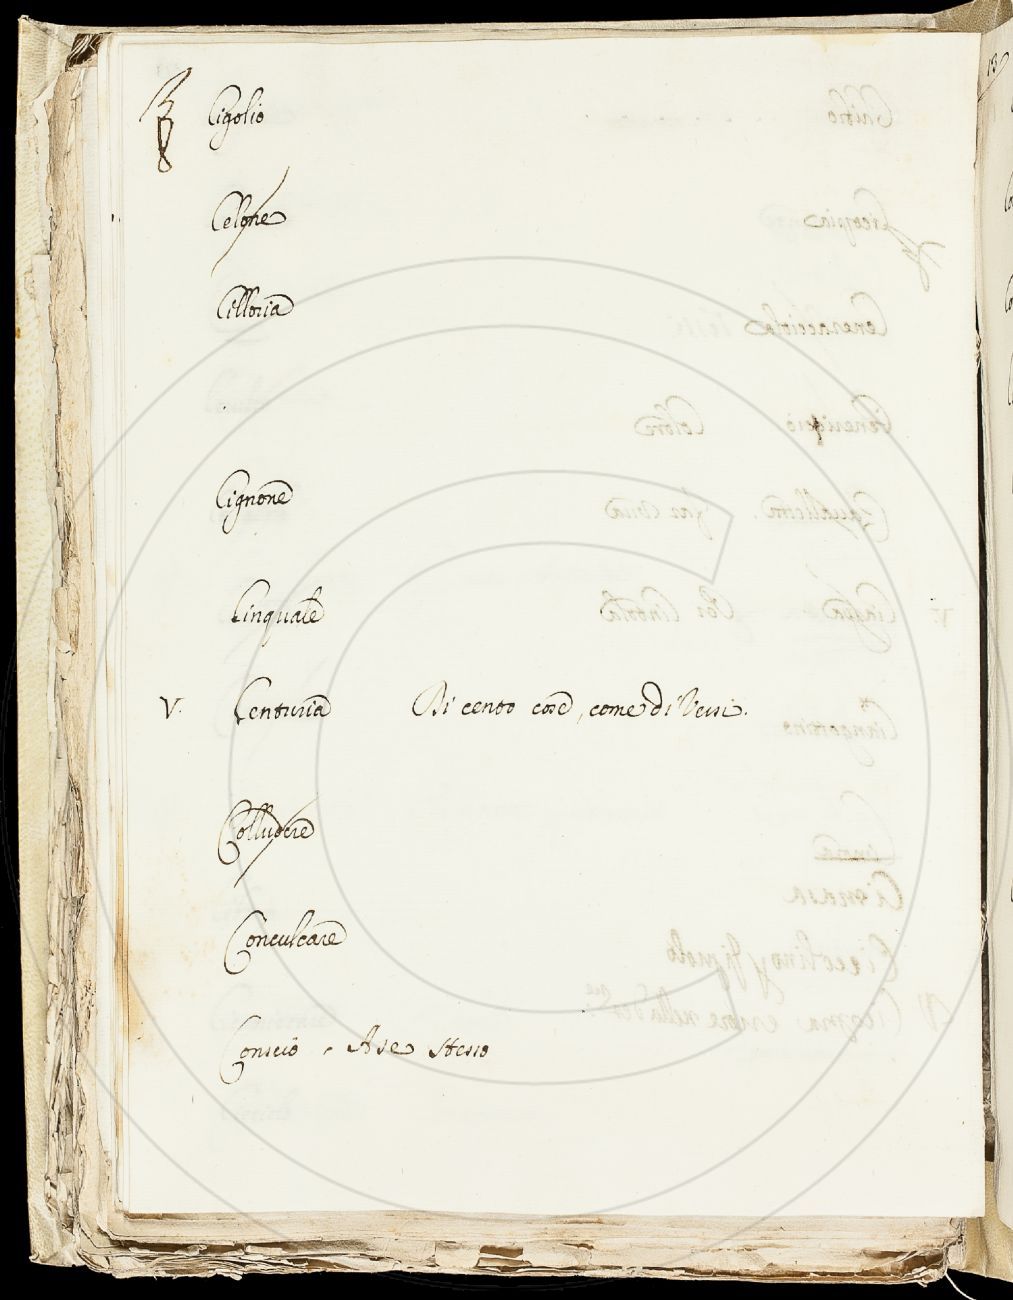 Cigolio
Celone
Cilloria
Cignone
Cinquale
V. Centuria Di cento cose, come di Versi.
Colludere
Conculcare
Conscio. A se stesso